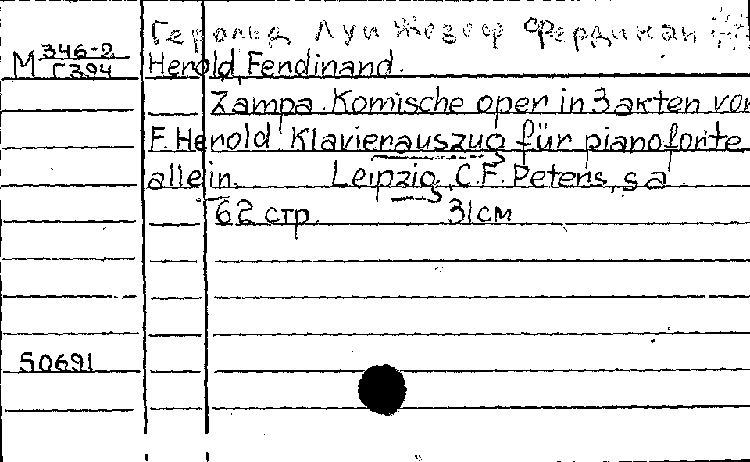 Герольд Луи Жозеф Фердинан
М 346-2
Г394
Herold, Ferdinand.
Zampa. Komische oper in 3 akten von
F. Herold Klavierauszug für pianoforte
allein. Leipzig, C.F. Peters, s a
62 стр. 31 см
50691